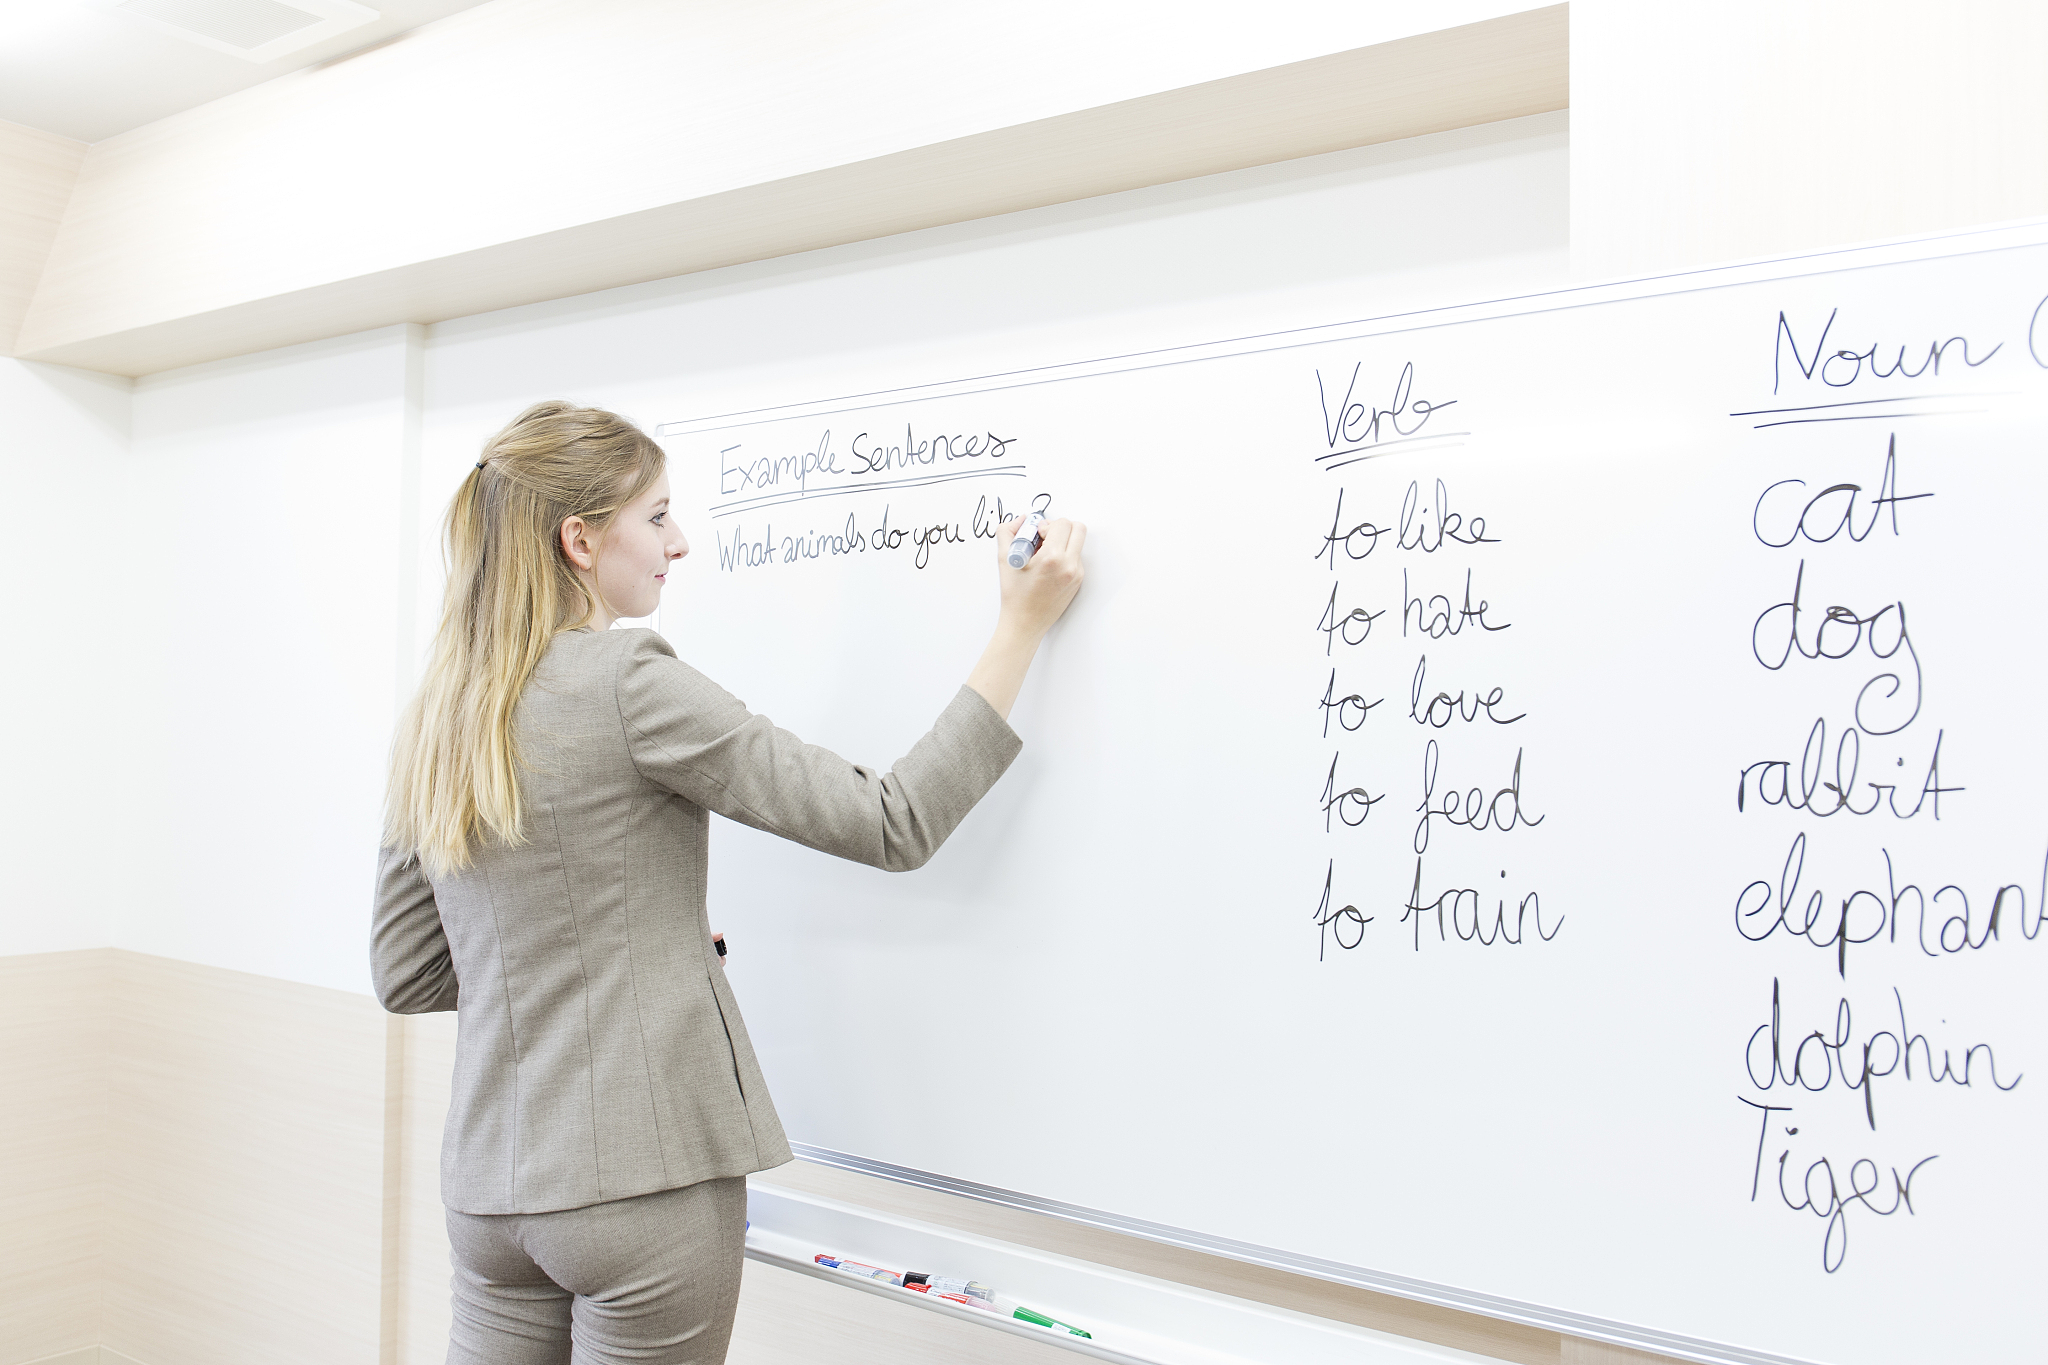 Example Sentences
What animals do you like?
Verb
to like
to hate
to love
to feed
to train
Noun
cat
dog
rabbit
elephant
dolphin
Tiger